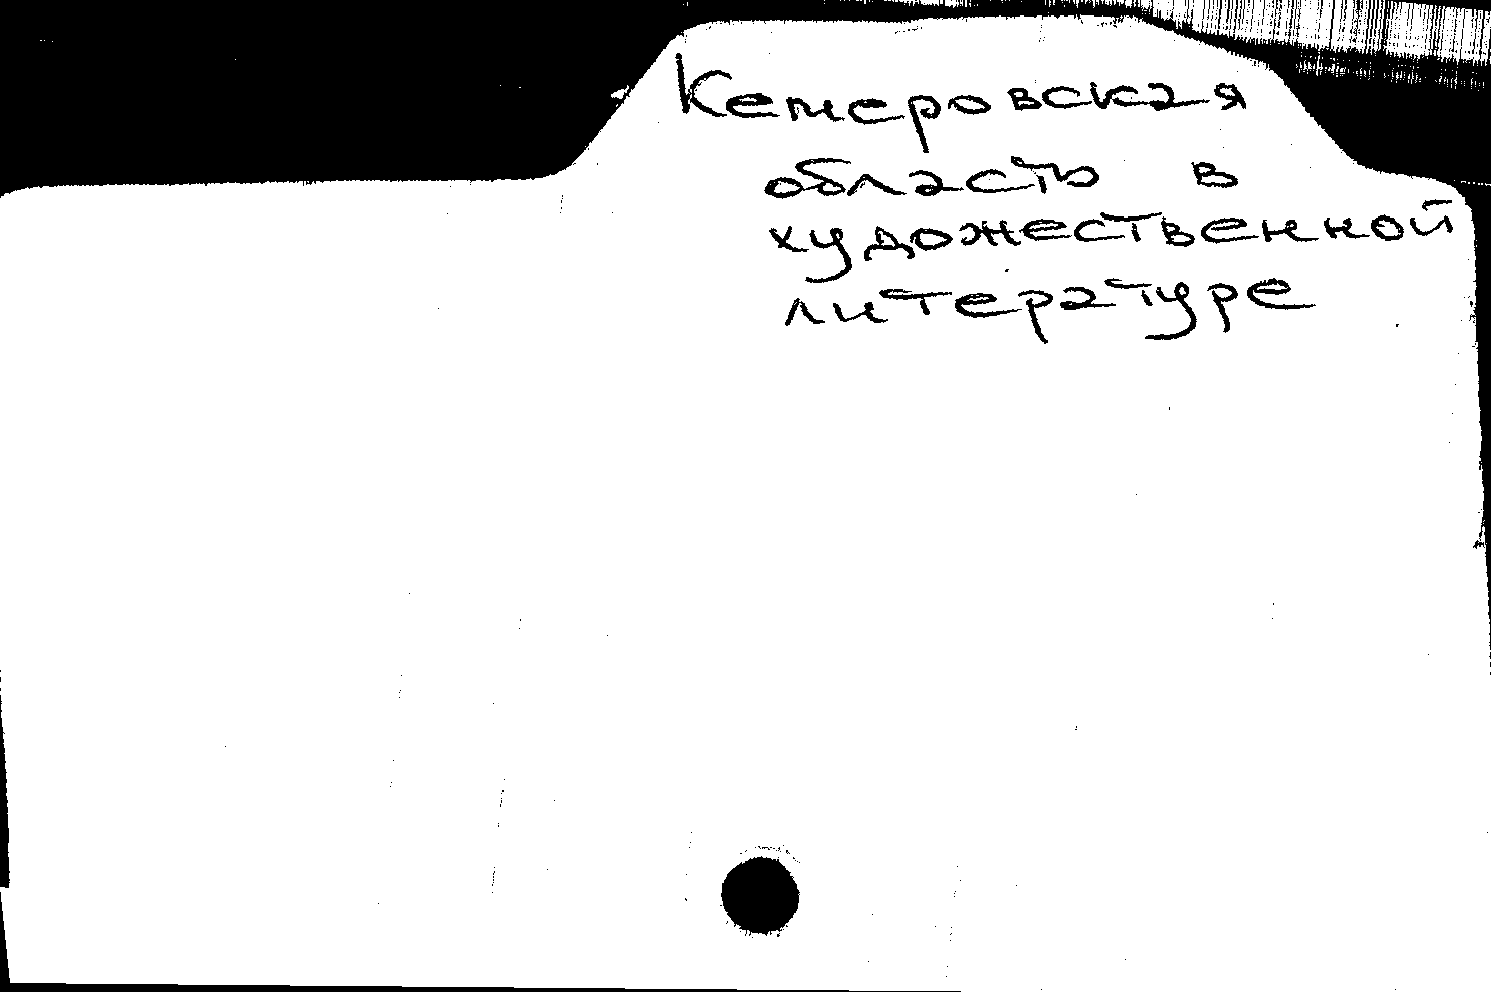 Кемеровская
область в
художественной
литературе